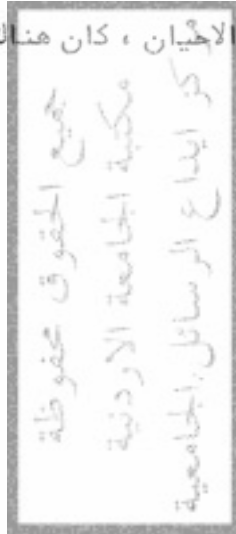 الاحيان ، كان هنا
جميع الحقوق محفوظة
مكتبة الجامعة الاردنية
كز ايداع الرسائل الجامعية